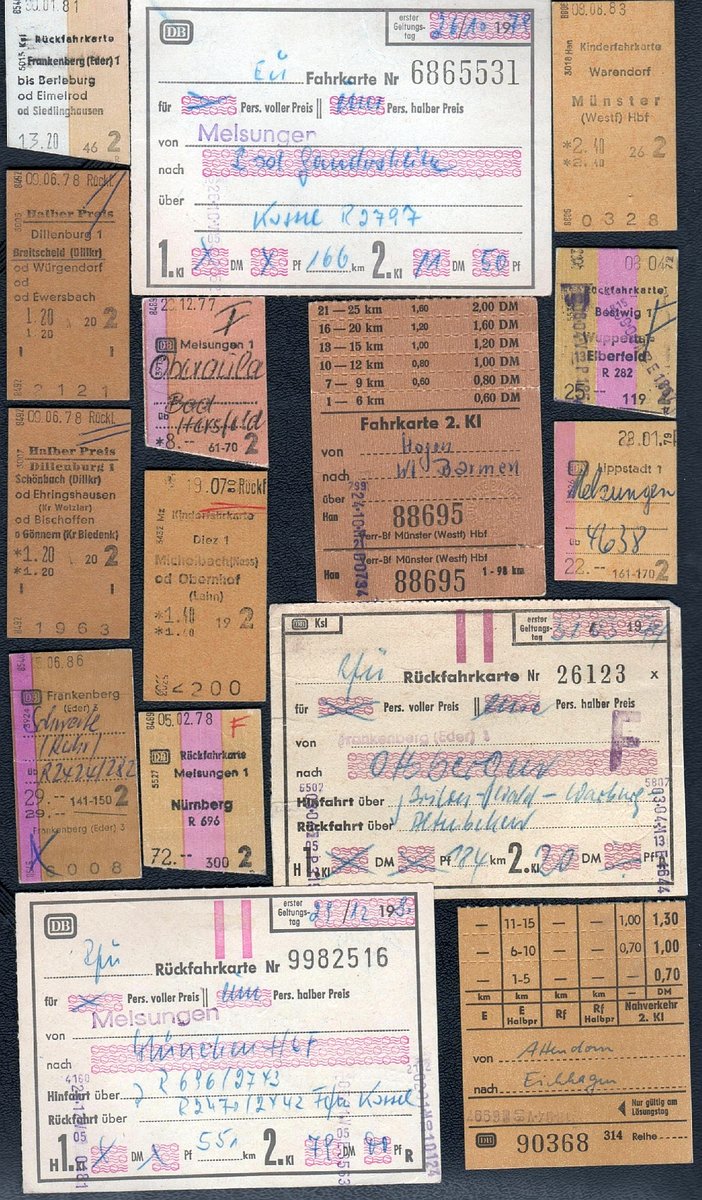 20.01.81
Rückfahrkarte
Frankenberg (Eder) 1
bis Berleburg
od Eimelrod
od Siedlinghausen
13.20 46 2
DB
erster Geltungstag 26/10 1979
Eü Fahrkarte Nr 6865531
für Pers. voller Preis Pers. halber Preis
von Melsungen
nach Bad Gandersheim
über
Kassel R2797
1. Kl X DM X Pf 166 km 2. Kl 11 DM 50 Pf
09.08.83
3018 Han
Kinderfahrkarte
Warendorf
Münster
(Westf) Hbf
*2.40
*2.40 26 2
0328
09.06.78 Rückf
Halber Preis
Dillenburg 1
Breitscheid (Dillkr)
od Würgendorf
od
od Ewersbach
1.20 20 2
1.20
2121
12.77
DB Melsungen 1
Oberaula
Bad
Hersfeld
*8.— 61-70 2
21 — 25 km 1,60 2,00 DM
16 — 20 km 1,20 1,60 DM
13 — 15 km 1,00 1,20 DM
10 — 12 km 0,80 1,00 DM
7 — 9 km 0,60 0,80 DM
1 — 6 km 0,60 DM
Fahrkarte 2. Kl
von Hagen
nach W Barmen
über
Han 88695
Verr-Bf Münster (Westf) Hbf
Verr-Bf Münster (Westf) Hbf
Han 88695 1 - 98 km
03.04.79
Rückfahrkarte
Bestwig 1
Wuppertal
Elberfeld
R 282
119 2
09.06.78 Rückf
Halber Preis
Dillenburg 1
Schönbach (Dillkr)
od Ehringshausen
(Kr Wetzlar)
od Bischoffen
od Gönnern (Kr Biedenk)
*1.20 20 2
*1.20
1963
19.07 Rückf
3432 Mz
Kinderfahrkarte
Diez 1
Michelbach (Nass)
od Obernhof
(Lahn)
*1.40 19 2
*1.40
2200
28.01.79
DB Lippstadt 1
Melsungen
4638
22.-- 161-170 2
06.86
DB Frankenberg
(Eder) 3
Schwerte
(Ruhr)
R2424/282
29.-- 141-150 2
29.--
Frankenberg (Eder) 3
6008
05.02.78 F
DB Rückfahrkarte
Melsungen 1
Nürnberg
R 696
72.-- 300 2
DB Ksl
erster Geltungstag
Rfü Rückfahrkarte Nr 26123 x
für Pers. voller Preis Pers. halber Preis
von Frankenberg (Eder) 1 F
nach Ottbergen
Hinfahrt über Brilon Wald - Warburg
Rückfahrt über Altenbeken
H 1. Kl DM Pf 184 km 2. Kl 30 DM Pf
DB
erster Geltungstag 29/12 19
Rfü Rückfahrkarte Nr 9982516
für Pers. voller Preis Pers. halber Preis
von Melsungen
nach München Hbf
Hinfahrt über R 696/2743
Rückfahrt über R 2470/2442 Kassel
H 1. Kl X DM X Pf 551 km 2. Kl DM Pf R
— 11-15 — — 1,00 1,30
— 6-10 — — 0,70 1,00
— 1-5 — — — 0,70
km km km km — DM
E E Halbpr Rf Rf Halbpr Nahverkehr 2. Kl
von Attendorn
nach Eichhagen
Nur gültig am Lösungstag
DB 90368 314 Reihe